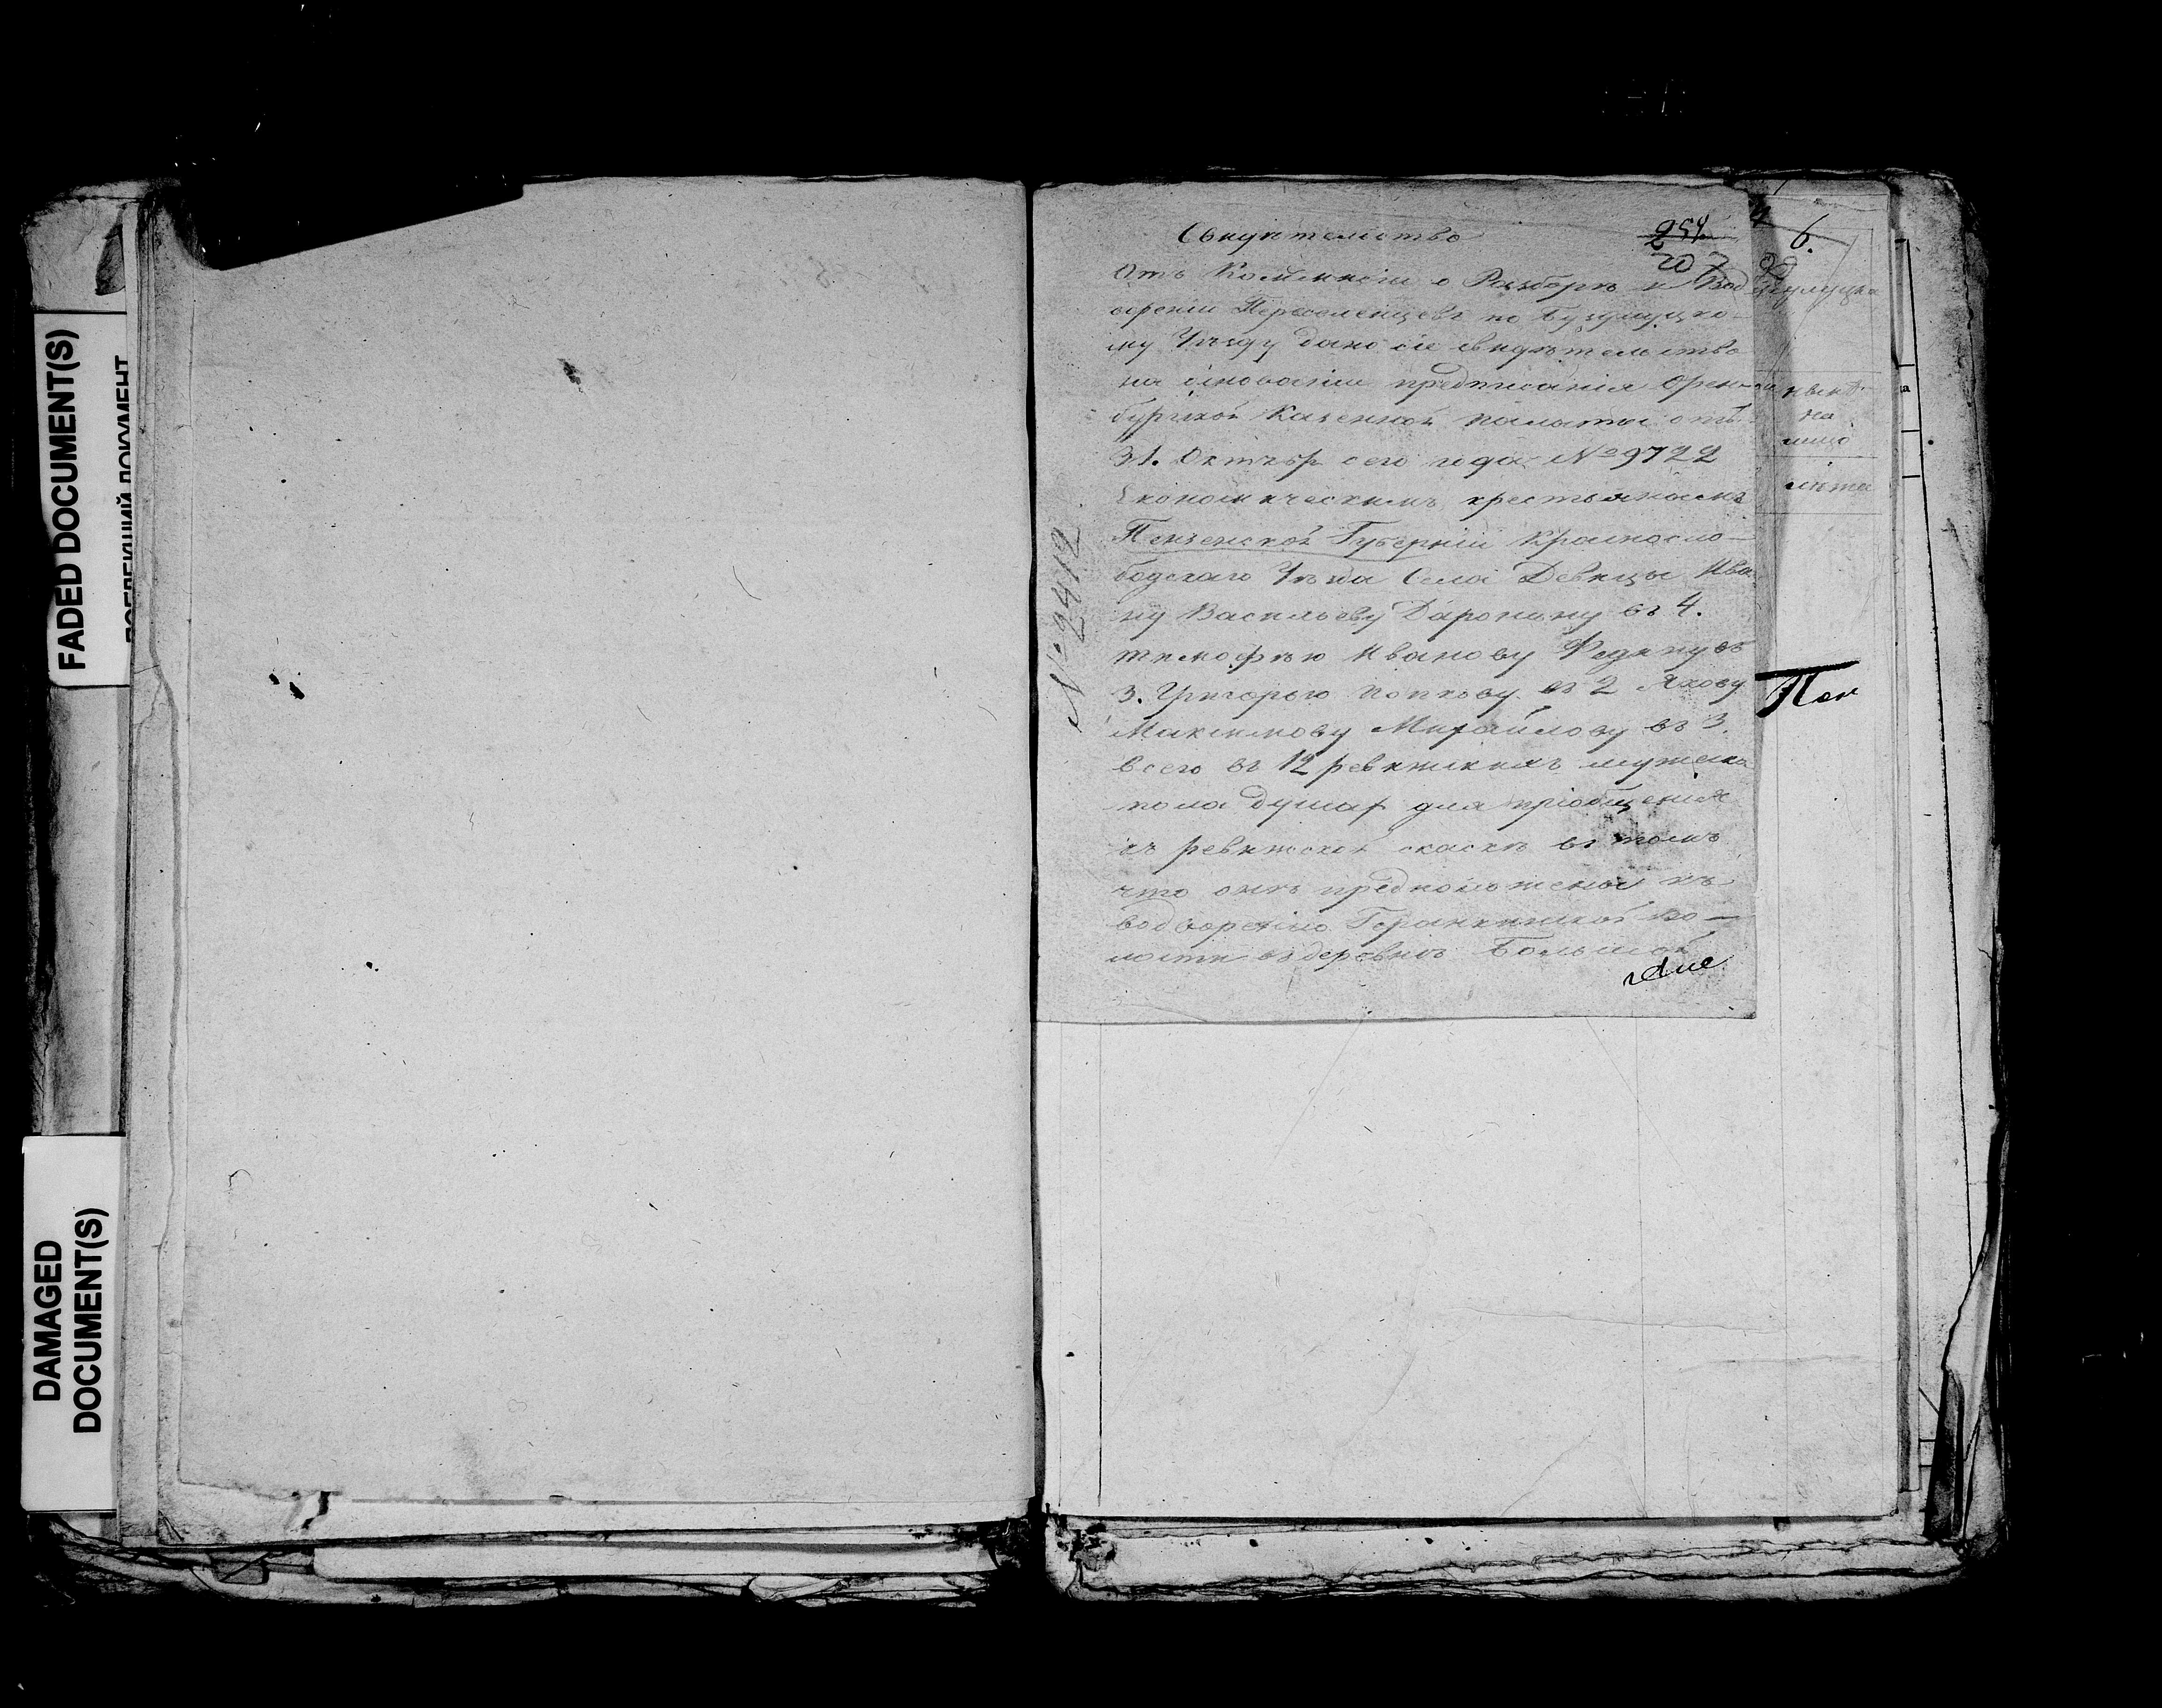 FADED DOCUMENT(S)
DAMAGED
DOCUMENT(S)
Свидѣтельство
254
207
6.
Отъ Коммисіи о Разборѣ и Вод
воренiи Переселенцевъ по Бузулуцко
му Уѣзду дано сіе свидѣтельство
на основаніи предписанія Орен
бургской Казенной Палаты отъ
31. Октябр сего года №9722
Економическимъ крестьянамъ
Пензенской Губерніи Красносло
бодскаго Уѣзда Села Девицы Ива
ну Васильеву Даронину въ 4.
тимофѣю Иванову Федкину въ
3. Григорью Попкову въ 2 Якову
Максимову Михайлову въ 3.
Всего въ 12 ревижскихъ мужеска
пола душах для пріобщенія
къ ревижской скаскѣ въ томъ
что онѣ предположены къ
водворенію во
лости въ деревнѣ Большой
№ 2412